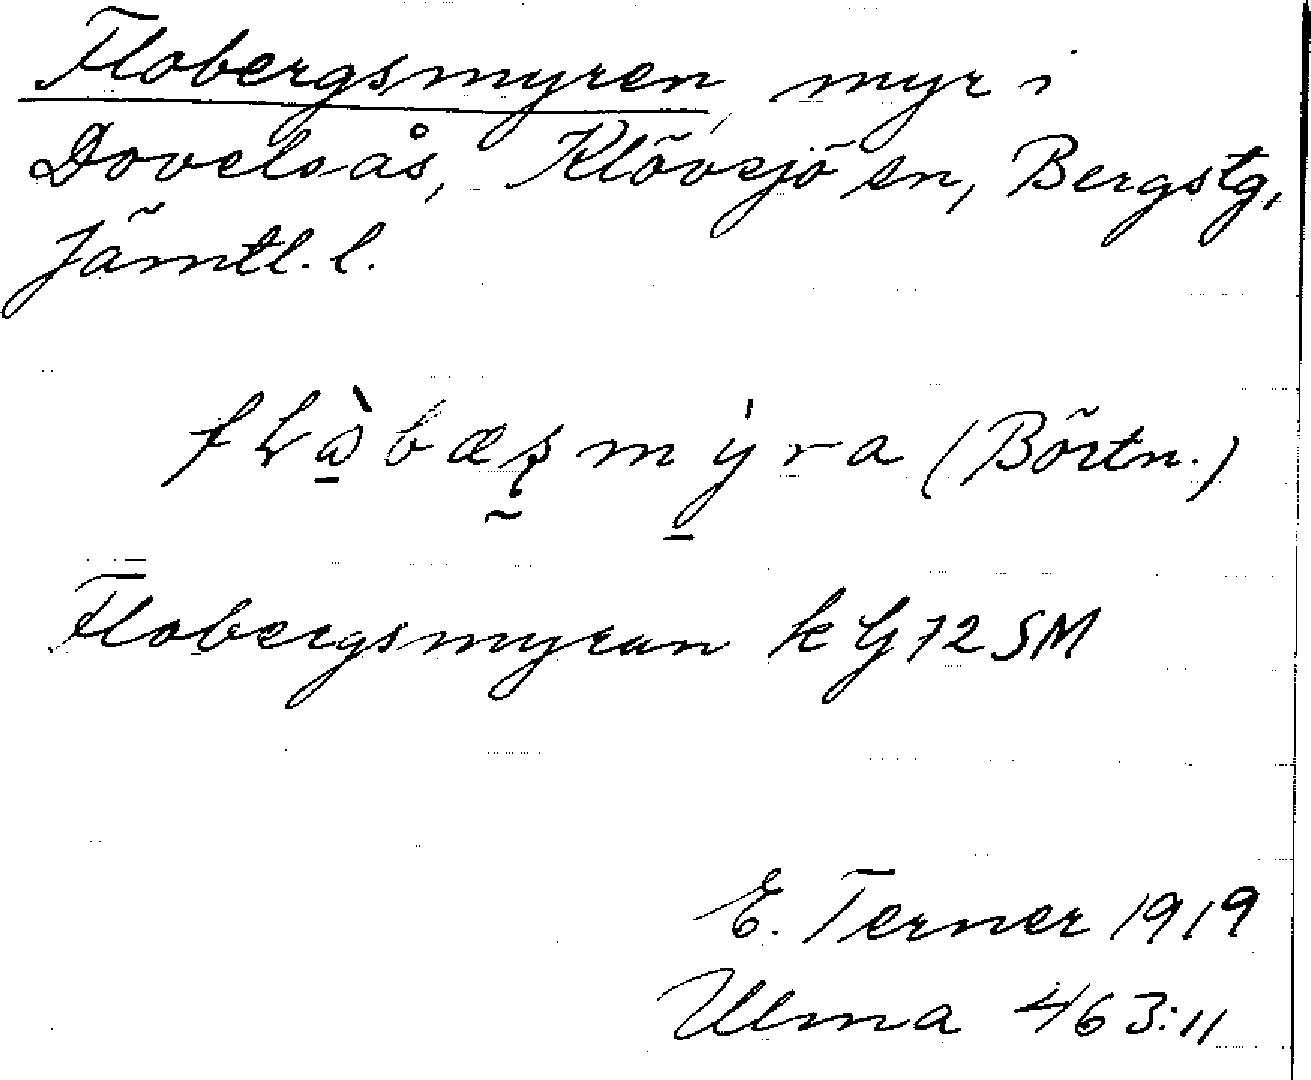 Flobergsmyren, myr i
Dovelsås, Klövsjö sn, Bergstg,
Jämtl. l.
(Börtn.)
Flobergsmyran k G72SM
E. Terner 1919
Ulma 463:11